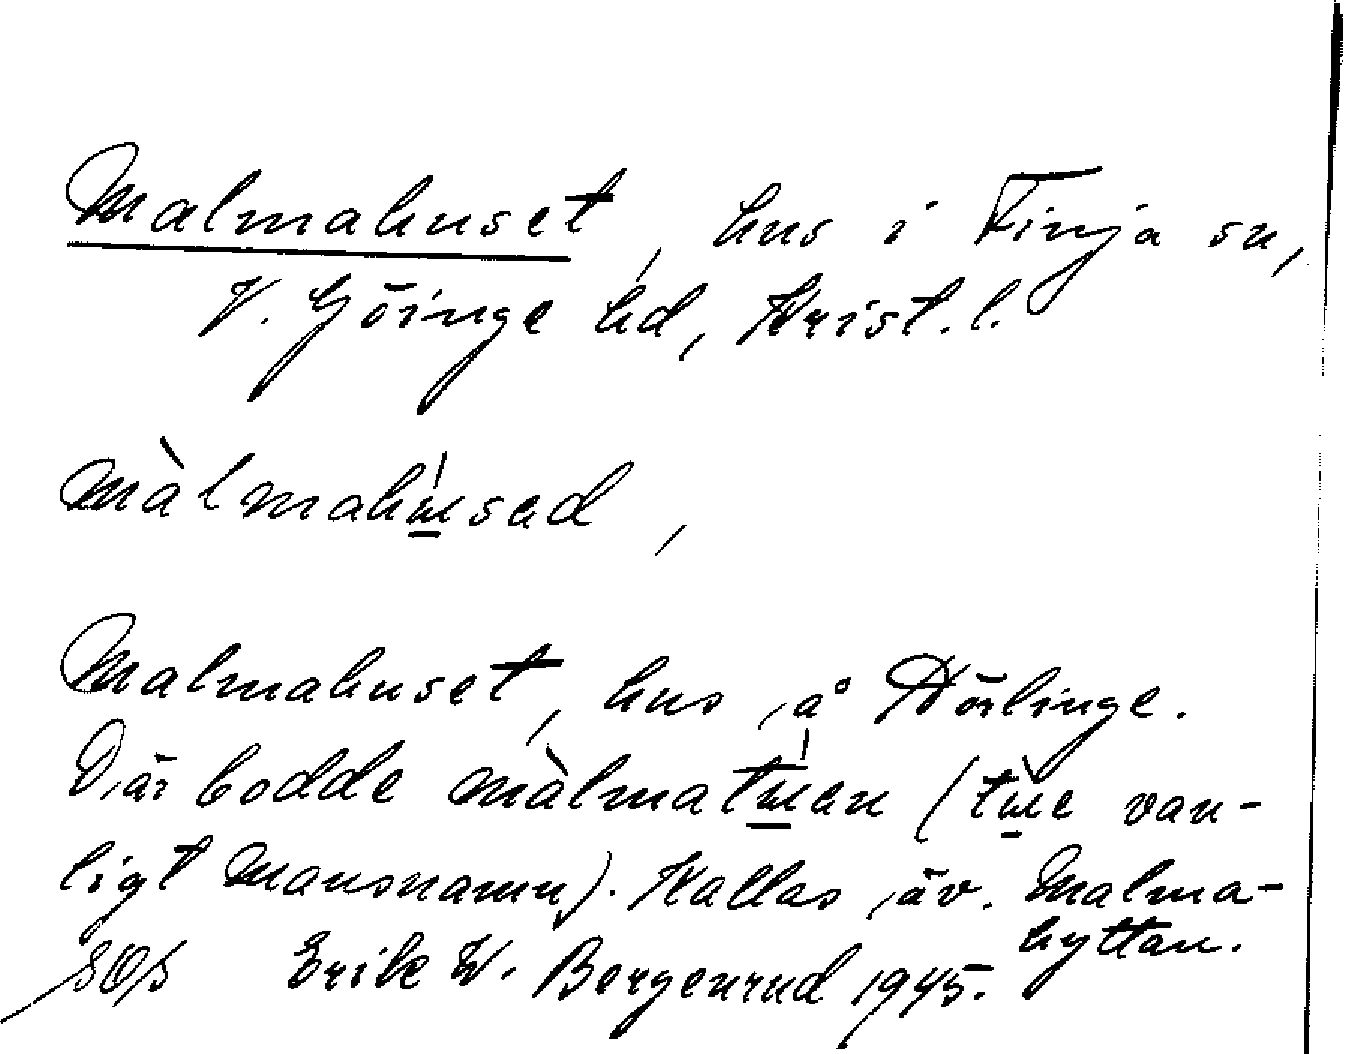 Malmahuset, hus i Finja sn,
V. Göinge hd, Krist. l.
màlmahɯ́sad,
Malmahuset, hus å Hörlinge.
Där bodde màlmatɯ́en (tɯ̀e van-
ligt mansnamn). Kallas äv. Malma-
hyttan.
SOS Erik W. Bergenrud 1945.